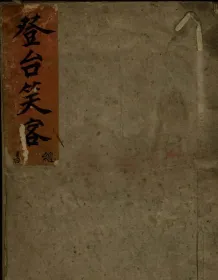 登台笑客